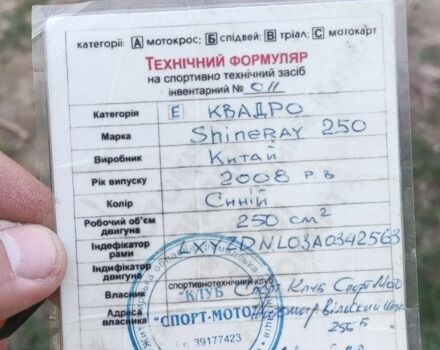 категорії: А мотокрос; Б спідвей; В тріал; С мотокарт
ТЕХНІЧНИЙ ФОРМУЛЯР
на спортивно технічний засіб
інвентарний № 011
Категорія Е КВАДРО
Марка ShineRAY 250
Виробник Китай
Рік випуску 2008 р.в
Колір Синій
Робочий об'єм двигуна 250 см²
Індефікатор рами LXYZDNL03A0342563
Індефікатор двигуна
спортивнотехнічний клуб
Власник "КЛУБ Клуб Спорт Мото
Адреса власника "СПОРТ-МОТО"
256 Б
39177423